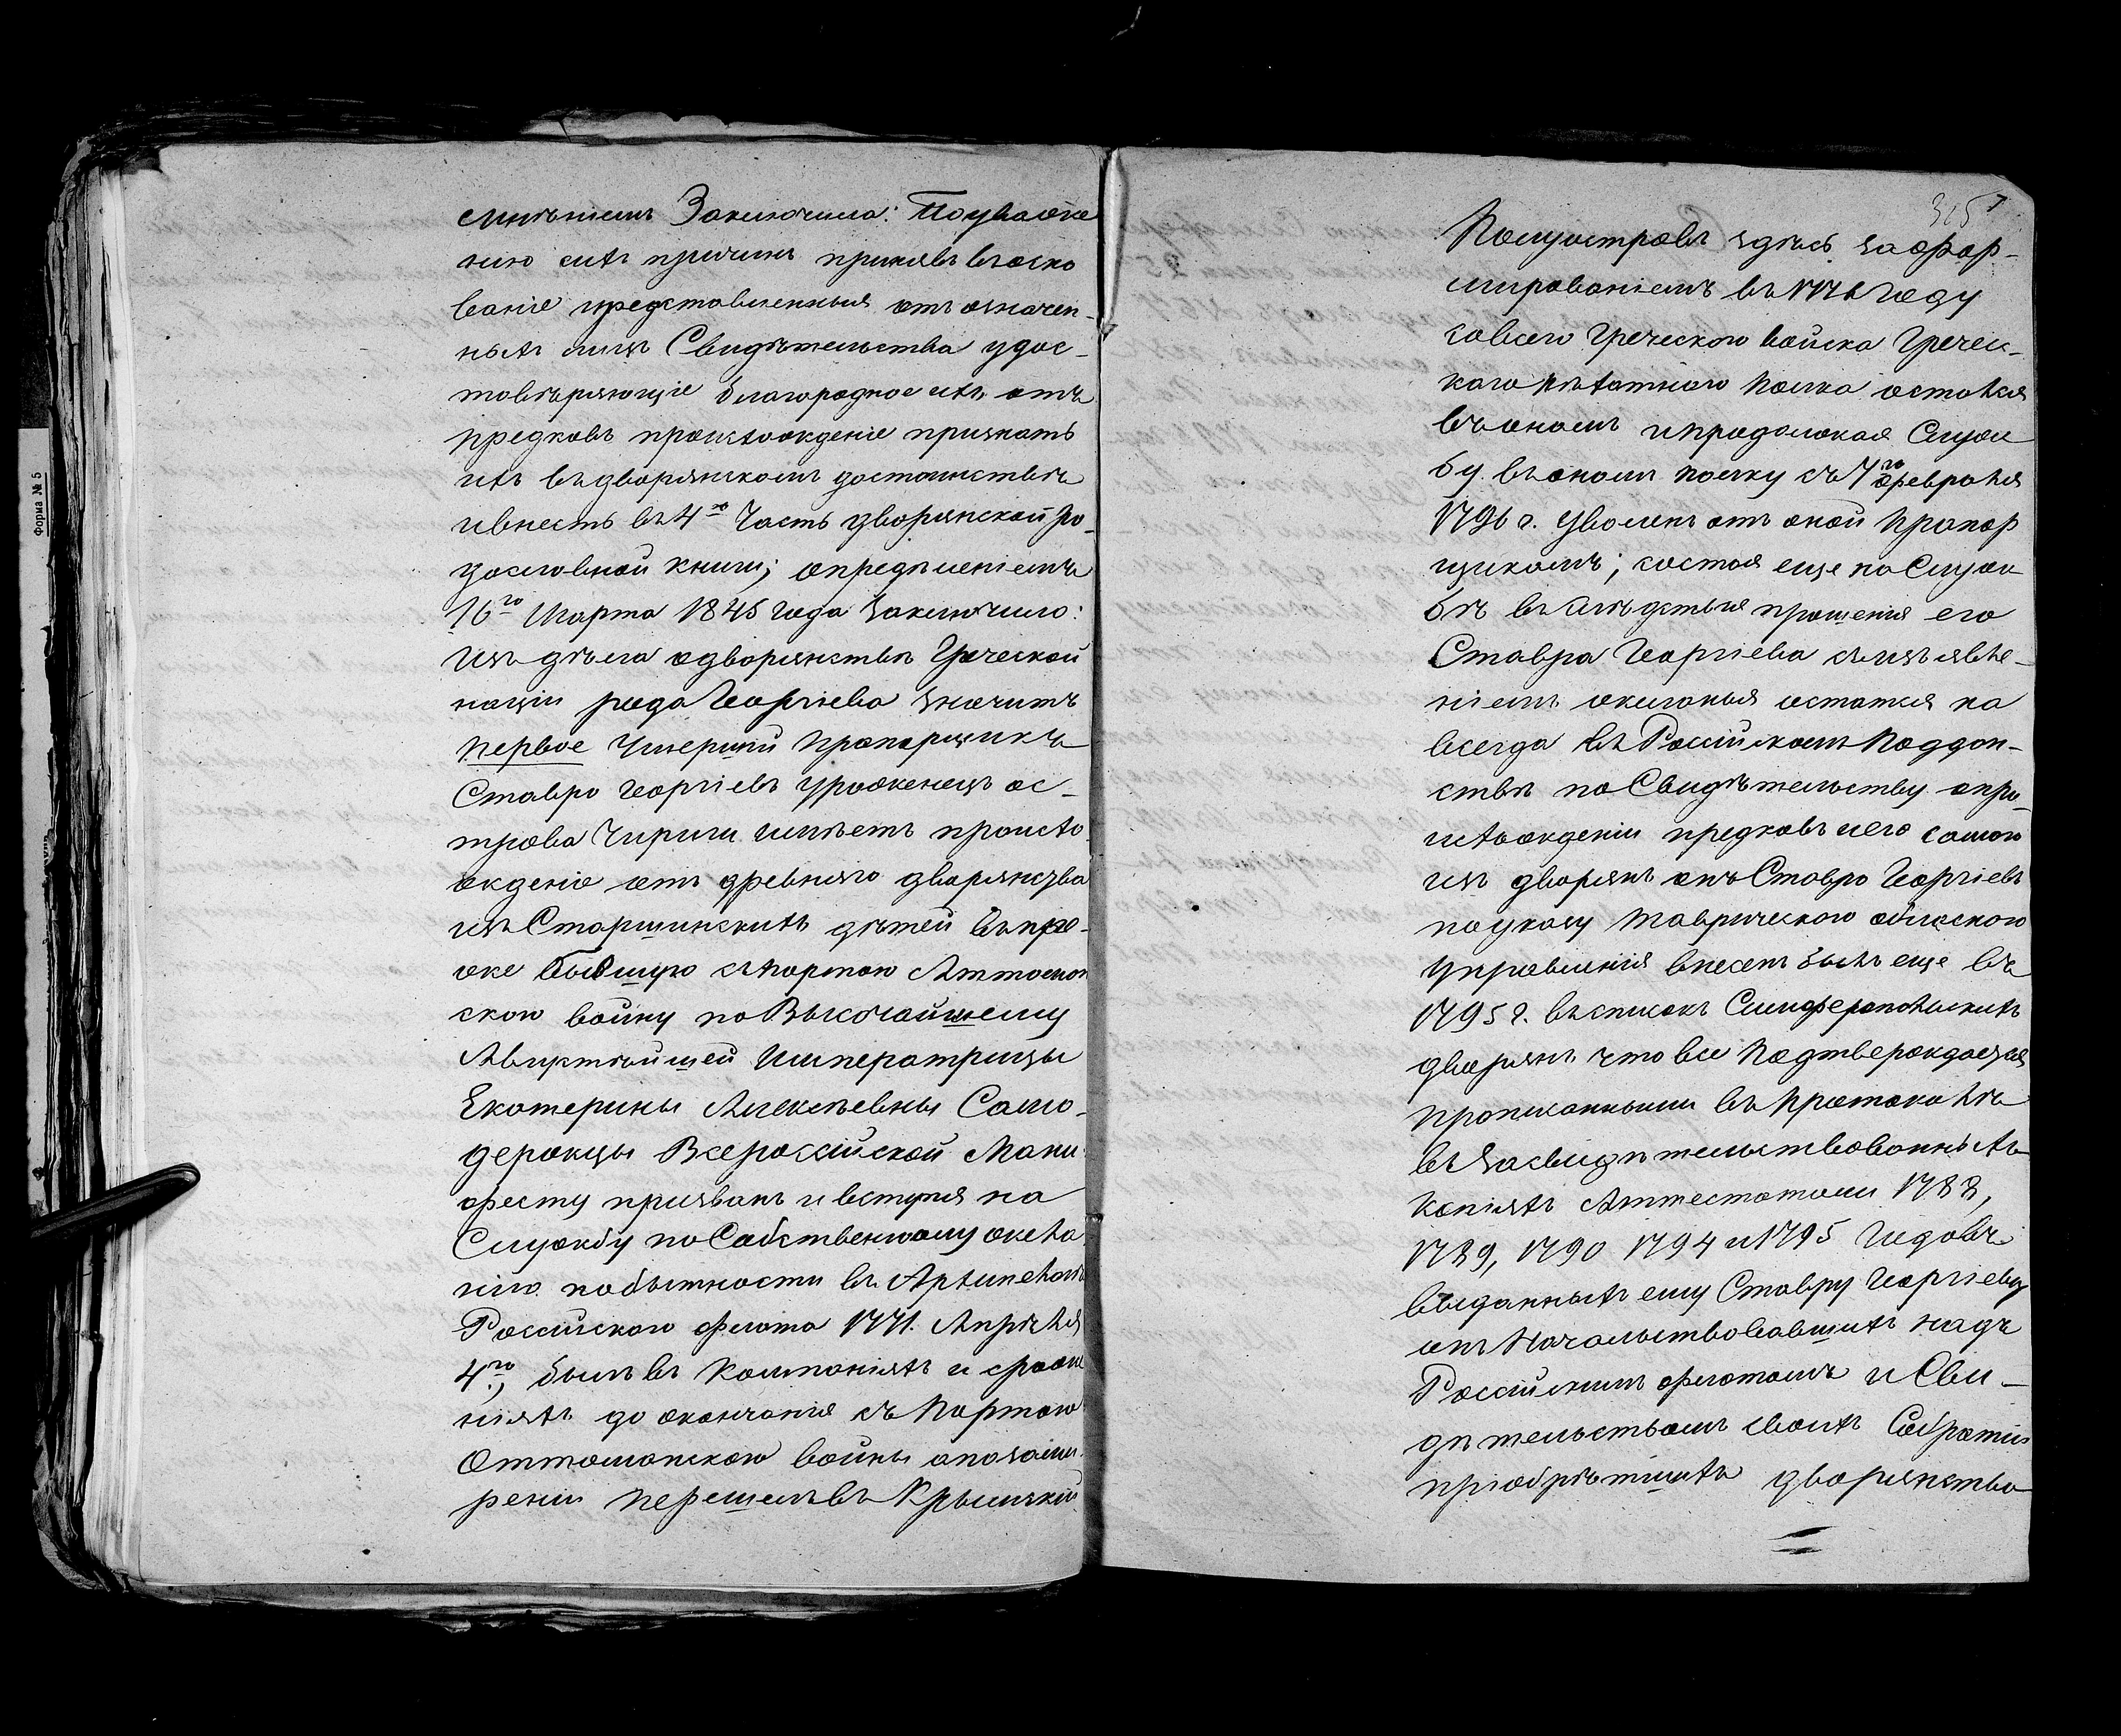 мнѣніемъ Заключила: По уваже
нію сихъ причинъ принявъ въ осно
ваніе представленныя отъ означен-
ныхъ лицъ Свидѣтельства удос-
товѣряющіе благородное ихъ отъ
предковъ происхожденіе признать
ихъ въ дворянскомъ достоинствѣ
и внесть въ 4ю Часть дворянской ро-
дословной книги; опредѣленіемъ
16го Марта 1845 года заключило:
Изъ дѣла о дворянствѣ Греческой
націи рода Георгіева значитъ
первое Умершій Прапорщикъ
Ставро Георгіевъ уроженецъ ос-
трова Чириги имѣетъ происхо
жденіе отъ древняго дворянства
изъ Старшинскихъ дѣтей въ пре-
же бывшую съ Портою Аттоман
скою войну по Высочайшему
Августѣйшей Императрицы
Екатерины Алексѣевны Само-
держцы Всероссійской Мани-
фесту призванъ и вступя на
Службу по Собственному жела
нію по бытности въ Архипелагѣ
Россійскаго флота 1771. Апрѣля
4го, былъ въ Компаніяхъ и сраже
ніяхъ до окончанія съ Портою
Оттоманскою войны а по зами-
реніи перешелъ въ Крымскій
315
Полуостровъ здѣсь за сфор-
мированіемъ въ 1776 году
со всего Греческого войска Гречес-
каго пѣхотнаго Полка остался
въ ономъ и продолжая Служ
бу въ ономъ полку съ 7го февраля
1796 г. уволенъ отъ оной Прапор
щикомъ; состоя еще на Служ
бѣ въ слѣдствія прошенія его
Ставра Георгіева съ изъявле-
ніемъ желанья остатся на
всегда въ Россійскомъ Поддан-
ствѣ по Свидѣтельству о про-
исхожденіи предковъ его самого
изъ дворянъ онъ Ставро Георгіевъ
по указу Таврического обласного
Управленія внесенъ былъ еще въ
1795 г. въ списокъ Симферопольскихъ
дворянъ что все Подтверждается
прописанными въ Протоколѣ
въ Засвидѣтельствованныхъ
копіяхъ Аттестатами 1788,
1789, 1790 1794 и 1795 Годовъ
выданныхъ ему Ставру Георгіеву
отъ Начальствовавшихъ надъ
Россійскимъ флотомъ и Сви-
дѣтельствомъ своихъ Собратій
пріобрѣтшихъ дворянство